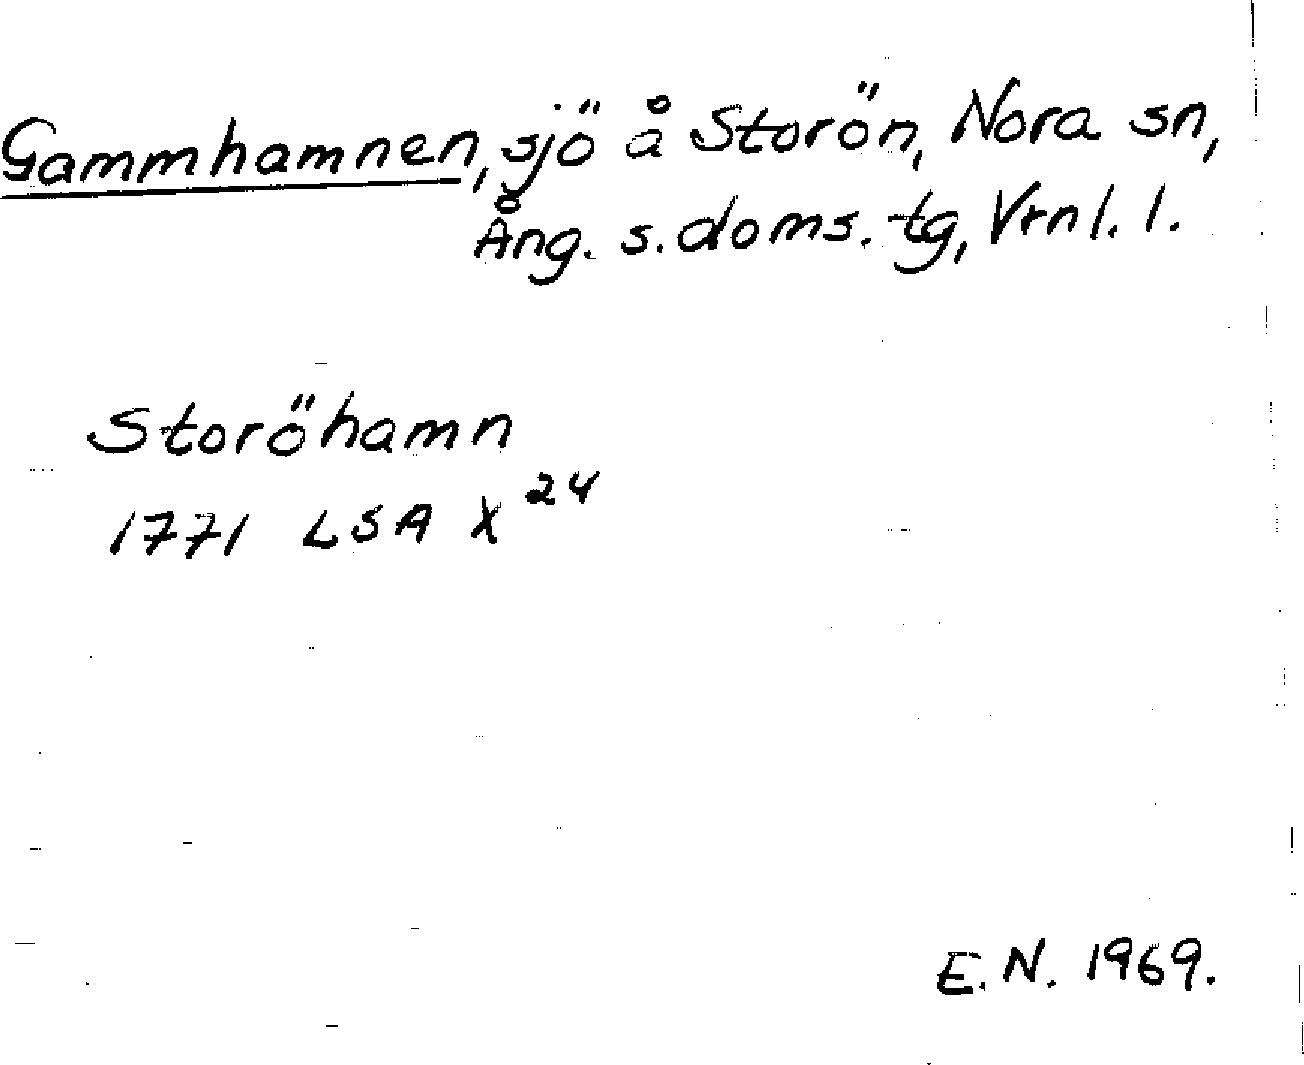 Gammhamnen, sjö å Storön, Nora sn,
Ång. s. doms.-tg, Vrnl. l.
Storöhamn
1771 LSA X²⁴
E.N. 1969.